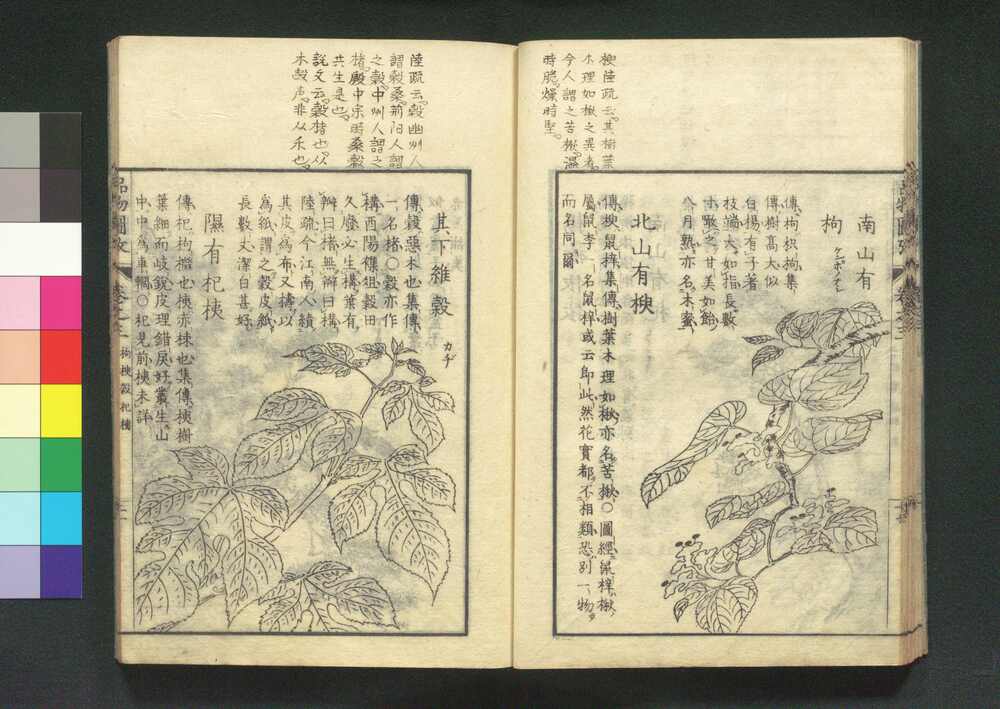 楰陸疏云其樹葉
木理如楸之異者
今人謂之苦楸濕
時脆燥時堅
南山有
枸
ケンポノナシ
傳枸枳枸集
傳樹高大似
白楊有子著
枝端大如指長數
寸噉之甘美如飴
八月熟亦名木蜜
北山有楰
傳楰鼠梓集傳樹葉木理如楸亦名苦楸〇圖經梁梓楸
屬鼠李一名鼠梓或云即此然花實都不相類恐別一物
而名同爾
陸疏云榖幽州人
謂榖桑荊阳人謂
之榖中州人謂之
楮殷中宗時桑榖
共生是也
說文云榖楮也从
木㱿声非从禾也
其下維榖
カヂ
傳榖惡木也集傳
一名楮〇榖亦作
構酉陽雜俎榖田
久廢必生構葉有
辧曰楮無辧曰構
陸疏今江南人績
其皮為布又擣以
為紙謂之榖皮紙
長數丈潔白甚好
隰有杞桋
傳杞枸檵也桋赤楝也集傳桋樹
葉細而岐銳皮理錯戾好叢生山
中中為車輞〇杞見前桋未詳
品物圖攷
卷之三
枸楰榖杞桋